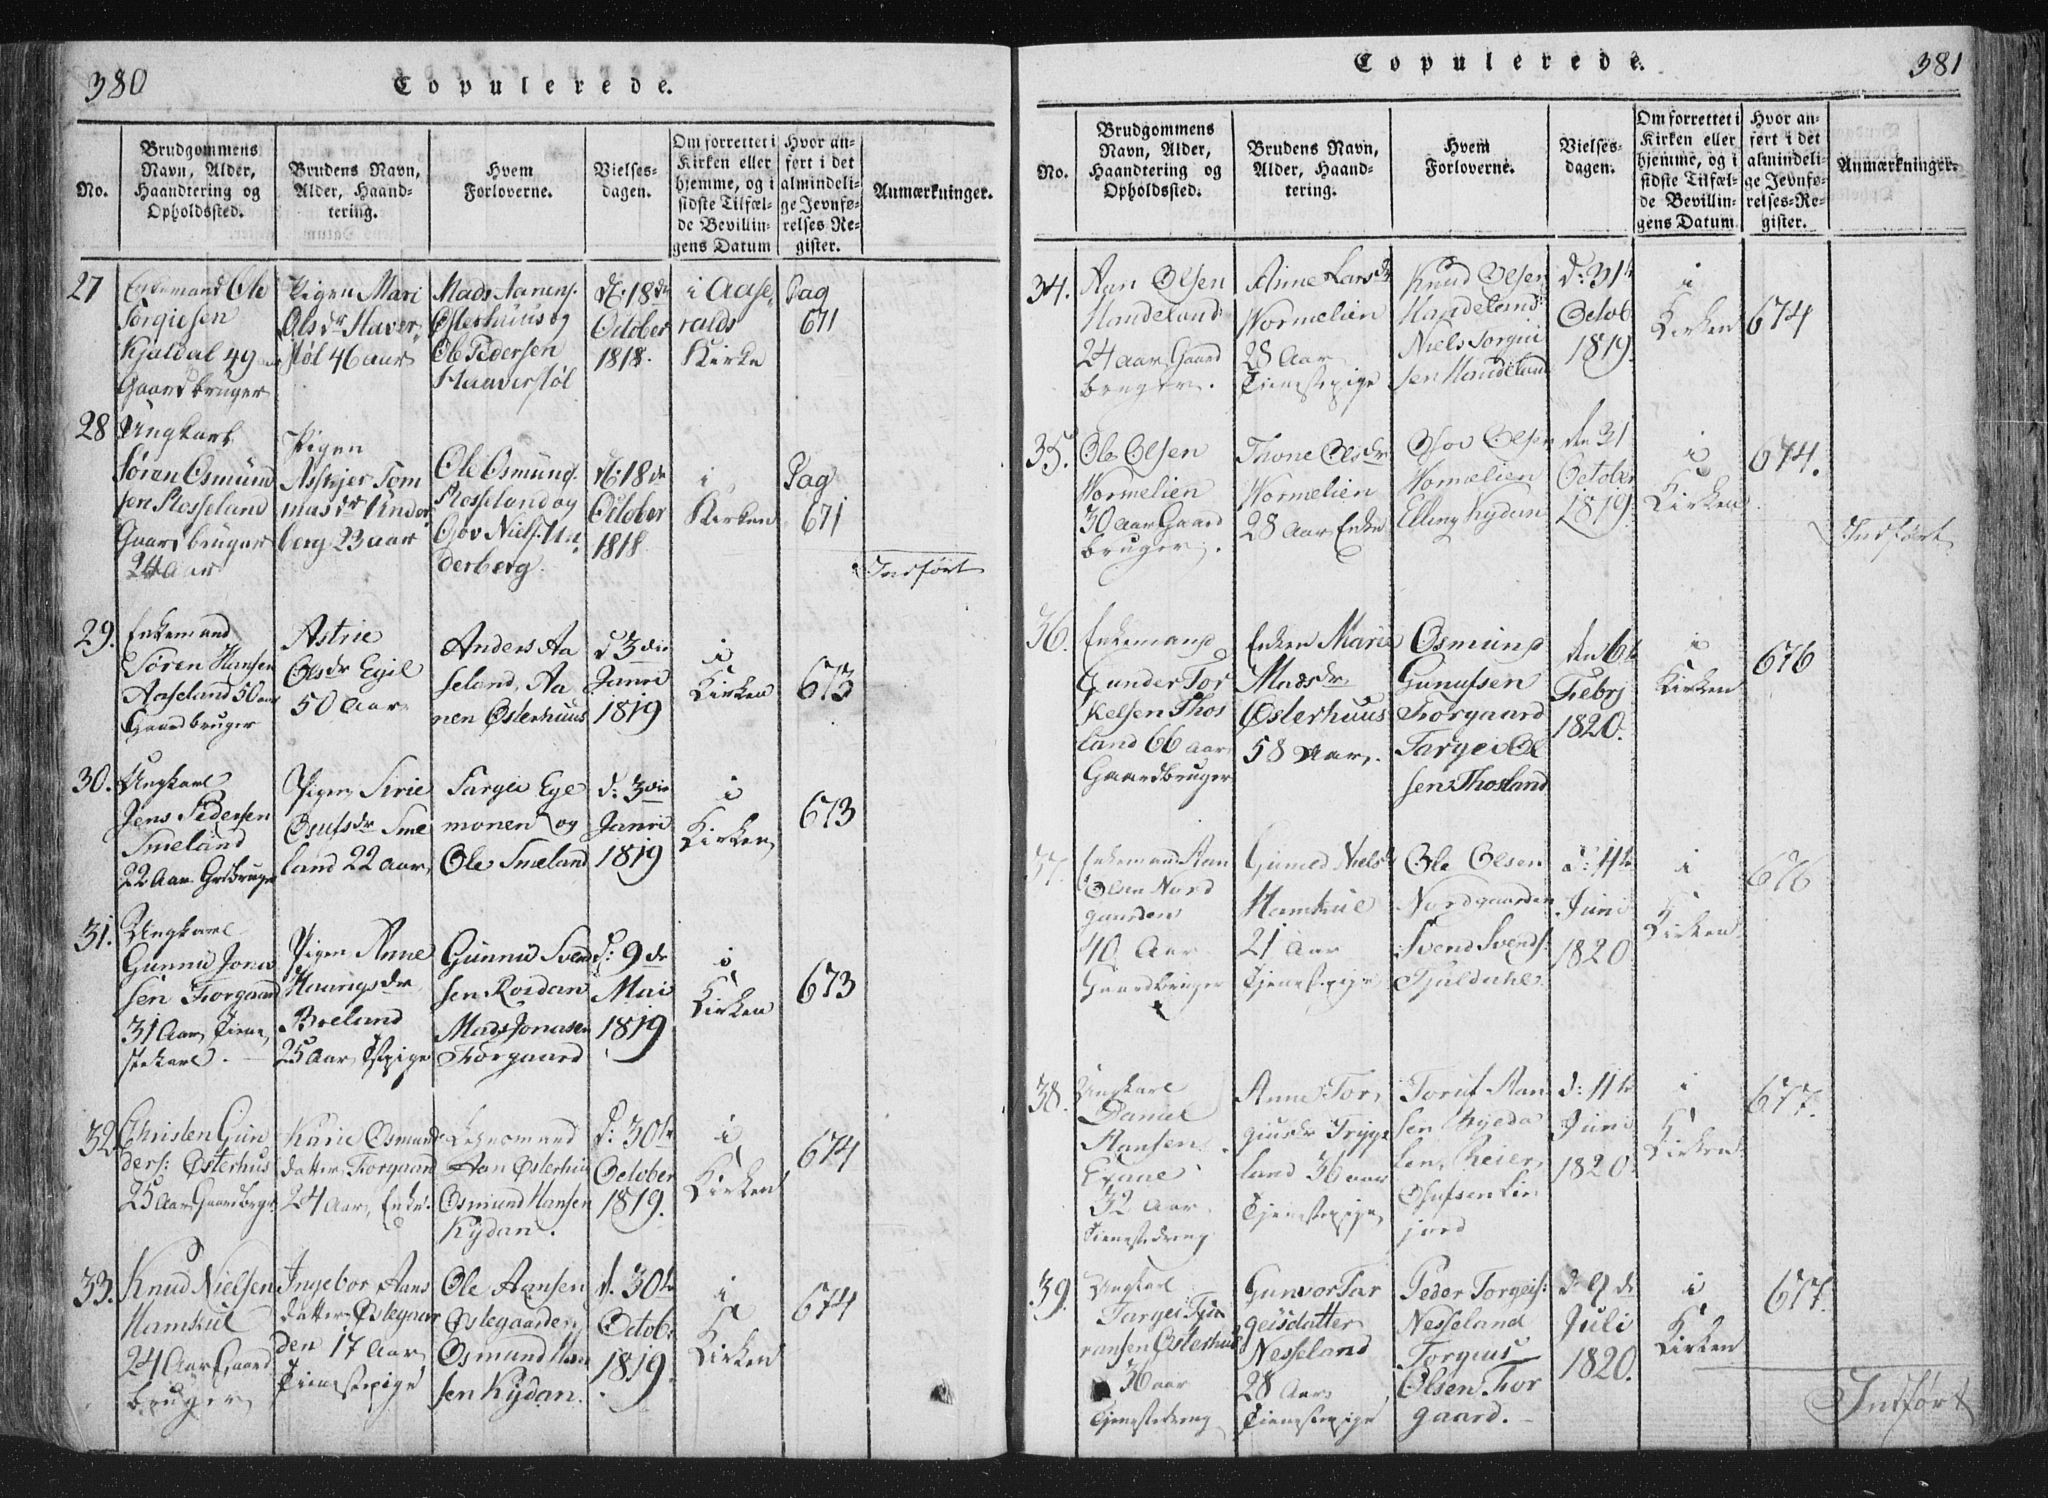 380
Copulerede.
No.
Brudgommens
Navn, Alder,
Haandtering og
Opholdssted.
Brudens Navn,
Alder, Haand-
tering.
Hvem
Forloverne.
Vielses-
dagen.
Om forrettet i
Kirken eller
hjemme, og i
sidste Tilfæl-
de Bevillin-
gens Datum
Hvor an-
ført i det
almindeli-
ge Jevnfø-
relses-Re-
gister.
Anmærkninger.
27
Enkemand Ole
Torgiesen
Kjaldal 49
Gaardbruger
Pigen Mari
Olsdr Haver
støl 46 aar
Mads Aanens.
Østerhuus og
Ole Pedersen
Haaverstøl
d. 18de
October
1818.
i Aase
ralds
Kirke
Pag
671
28
Ungkarl
Søren Osmund
sen Rosseland
Gaardbruger
24 Aar
Pigen
Asbjer Tom
masdr Under
berg 23 aar
Ole Osmunds.
Rosseland og
Osov Niels. Un
derberg.
d. 18de
October
1818
i
Kirken
Pag
671
Indført
29.
Enkemand
Søren Hansen
Aaseland 50 aar
Gaardbruger
Astrie
Olsdr Egil
50 Aar
Anders Aa
seland, Aa
nen Østerhuus
d 3die
Janri
1819
i
Kirken
673
30.
Ungkarl
Jens Pedersen
Smeland
22 Aar Grdbruger
Pigen Sirie
Osufsdr Sme
land 22 aar
Targie Ege
monen og
Ole Smeland
d: 3die
Janri
1819
i
Kirken
673
31.
Ungkarl
Gunnu Jona
sen Torgaard
31 Aar, Tiene
stekarl.
Pigen Anne
Haangsdr
Boeland
25 Aar Tspige
Gunnu Svend
sen Roidan
Mads Jonasen
Torgaard
d: 9de
Mai
1819
i
Kirken
673
32
Christen Gun
ders: Østerhus
25 Aar Gaardbrgr
Karie Osmunds
datter Torgaard
24 Aar, Enke.
Aan Østerhuus
Osmund Hansen
Kydan.
d: 30te
October
1819.
i
Kirken
674
33.
Knud Nielsen
Hamkul
24 Aar Gaard
bruger
Ingebor Aans
datter Østegaar
den 17 Aar
Tienestepige
Ole Aansen
Østegaarden
Osmund Han
sen Kydan.
d. 30te
Octob:
1819.
i
Kirken
674
Copulerede.
381
No.
Brudgommens
Navn, Alder,
Haandtering og
Opholdssted.
Brudens Navn,
Alder, Haand-
tering.
Hvem
Forloverne.
Vielses-
dagen.
Om forrettet i
Kirken eller
hjemme, og i
sidste Tilfæl-
de Bevillin-
gens Datum
Hvor an-
ført i det
almindeli-
ge Jevnfø-
relses-Re-
gister.
Anmærkninger.
34.
Aan Olsen
Haadeland
24 Aar Gaard
bruger.
Anne Larsdr
Wormelien
28 Aar
Tienestepige
Knud Olsen
Haadeland
Niels Torgui
sen Haadeland
d: 31te
Octob
1819.
i
Kirken
674
35.
Ole Olsen
Wormelien
30 Aar Gaard
bruger.
Thone Olsdr
Wormelien
28 Aar Enke
Osov Olsen
Wormelien
Elling Kydan
den 31
October
1819.
i
Kirken
674.
Indført
36.
Enkemand
Gunder Tor
kelsen Thos
land 66 aar
Gaardbruger
Enken Marie
Madsdr
Østerhuus
58 Aar.
Osmund
Gunufsen
Torgaard
Targei Ol
sen Thosland
den 6te
Febrj
1820.
i
Kirken
676
37.
Enkemand Aan
Olsen Nord
gaarden
40 Aar
Gaardbruger
Guned Nielsdr
Hamkul
21 Aar
Tjenestepige
Ole Olsen
Nordgaarden
Svend Svends:
Tjaldahl
d: 4te
Juni
1820
i
Kirken
676
38.
Ungkarl
Daniel
Hansen
32 Aar
Tienestedreng
Anne Tor
giusdr Trygs
land 36 aar
Tjenestepige
Toruf Aan
sen Kyeda
len, Reier
Osufsen Lin
jord
d: 4te
Juni
1820.
i
Kirken
677.
39.
Ungkarl
Targei Tju
ransen Østerhus
36 aar
Tjenestedreng
Gunvor Tar
geisdatter
Nesseland
28 Aar
Tienestepige
Peder Torgeis:
Nesseland
Torgius
Olsen Tor
gaard.
d. 9de
Juli
1820.
i
Kirken
677.
Indført